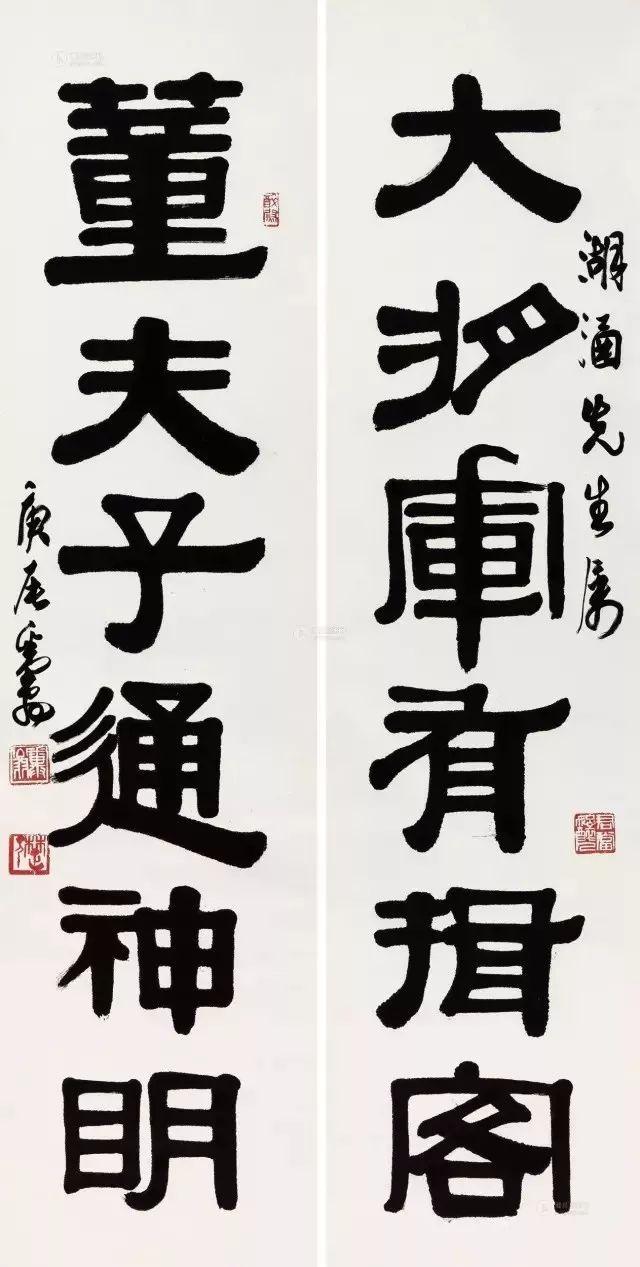 湖先生属
大將軍有揖客
董夫子通神明
庚辰